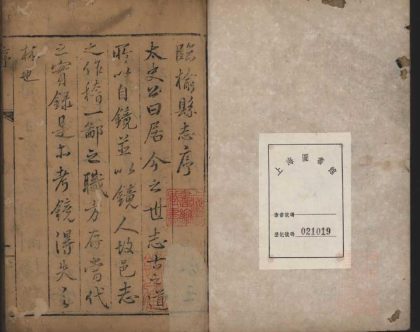 臨榆縣志序
太史公曰居今之世志古之道
所以自鏡並以鏡人故邑志
之作稽一鄙之職方存當代
之實錄是亦考鏡得失之
林也
序
上海圖書館
索書號碼
登記號碼 021019